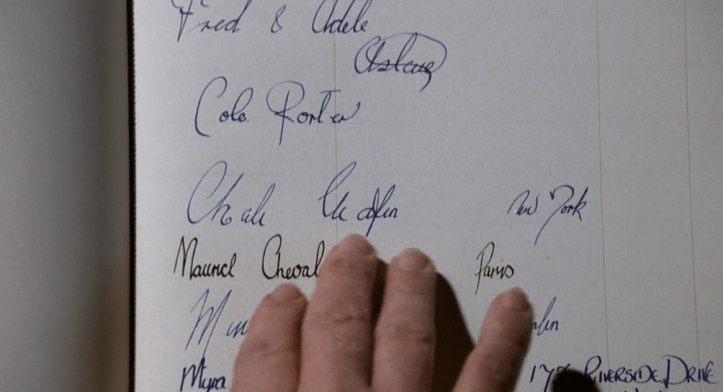 Fred & Adele
Astaire
Cole Porter
Charlie Chaplin New York
Maurice Cheval Paris
Myra RIVERSIDE DRIVE